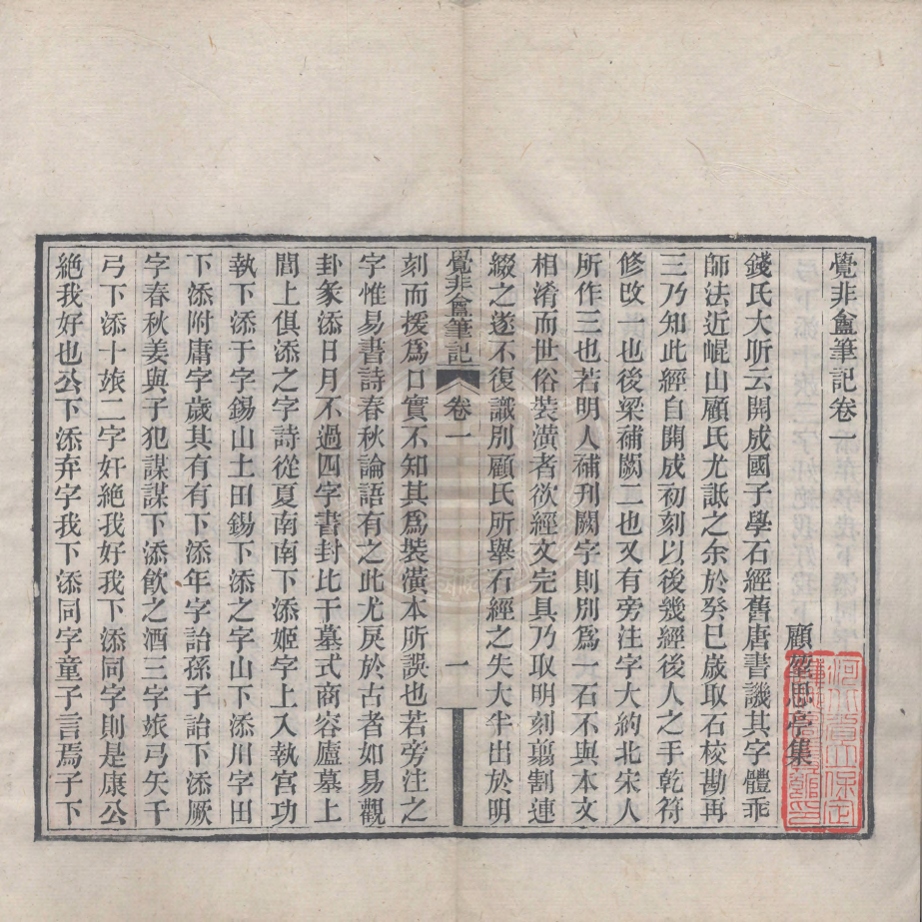 覺非盦筆記卷一
顧堃思亭集
錢氏大昕云開成國子學石經舊唐書譏其字體乖
師法近崐山顧氏尤詆之余於癸巳歲取石校勘再
三乃知此經自開成初刻以後幾經後人之手乾符
修改一也後梁補闕二也又有旁注字大約北宋人
所作三也若明人補刋闕字則別爲一石不與本文
相淆而世俗裝潢者欲經文完具乃取明刻翦割連
綴之遂不復識別顧氏所舉石經之失大半出於明
覺非盦筆記
卷一
一
刻而援爲口實不知其爲裝潢本所誤也若旁注之
字惟易書詩春秋論語有之此尤戾於古者如易觀
卦彖添日月不過四字書封比干墓式商容廬墓上
閭上俱添之字詩從夏南南下添姬字上入執宮功
執下添于字錫山土田錫下添之字山下添川字田
下添附庸字歲其有有下添年字詒孫子詒下添厥
字春秋姜與子犯謀謀下添飲之酒三字玈弓矢千
弓下添十玈二字奸絕我好我下添同字則是康公
絕我好也公下添弃字我下添同字童子言焉子下